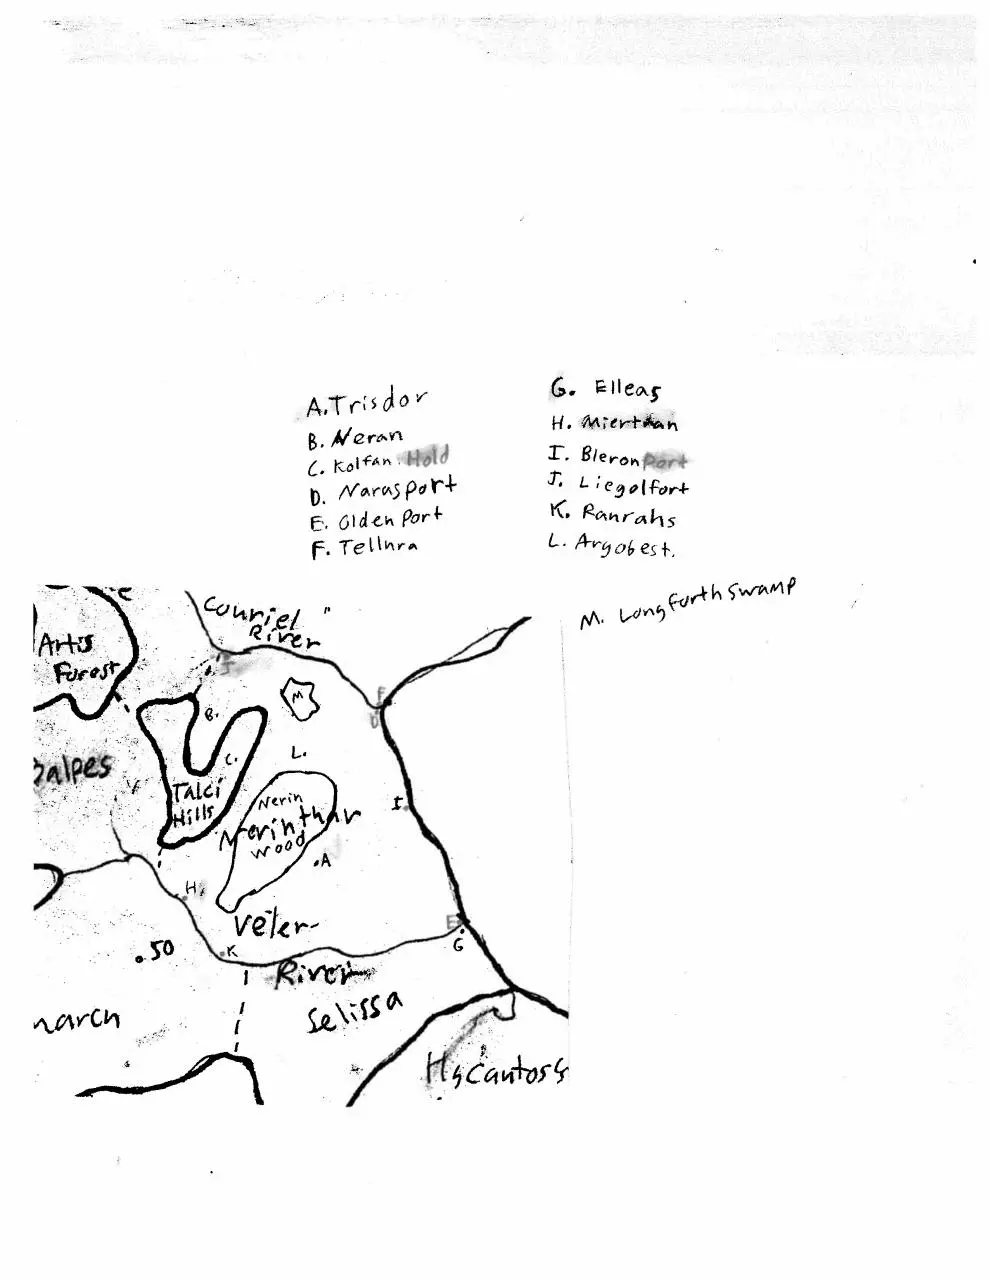 A. Trisdor
B. Neran
C. Kolfan Hold
D. Narasport
E. Olden Port
F. Tellnra
G. Elleas
H. Miertdan
I. Bleron Port
J. Liegolfort
K. Ranrahs
L. Argobest.
M. Longforth Swamp
Couriel
River
Artis
Forest
J
M
F
D
B.
C.
L.
Talci
Hills
Nerin
Nerinthar
wood
I
.A
H
Veler-
E
G
.50
K
River
Selissa
march
Hycantoss